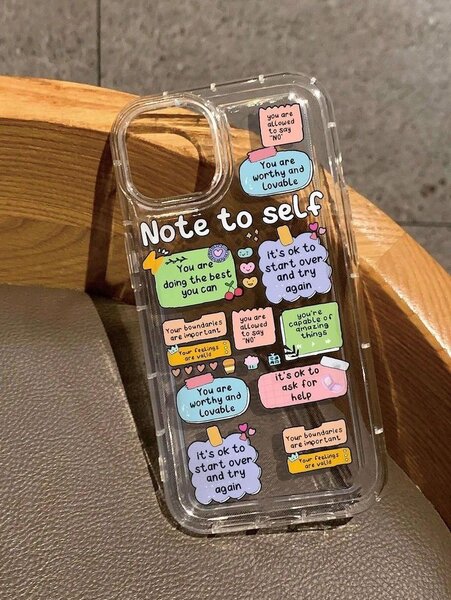 you are
allowed
to say
"NO"
You are
worthy and
Lovable
Note to self
You are
doing the best
you can
it's ok to
start over
and try
again
Your boundaries
are important
Your feelings
are valid
you are
allowed
to say
"NO"
you're
capable of
amazing
things
You are
worthy and
Lovable
it's ok to
ask for
help
it's ok to
start over
and try
again
Your boundaries
are important
Your feelings
are valid